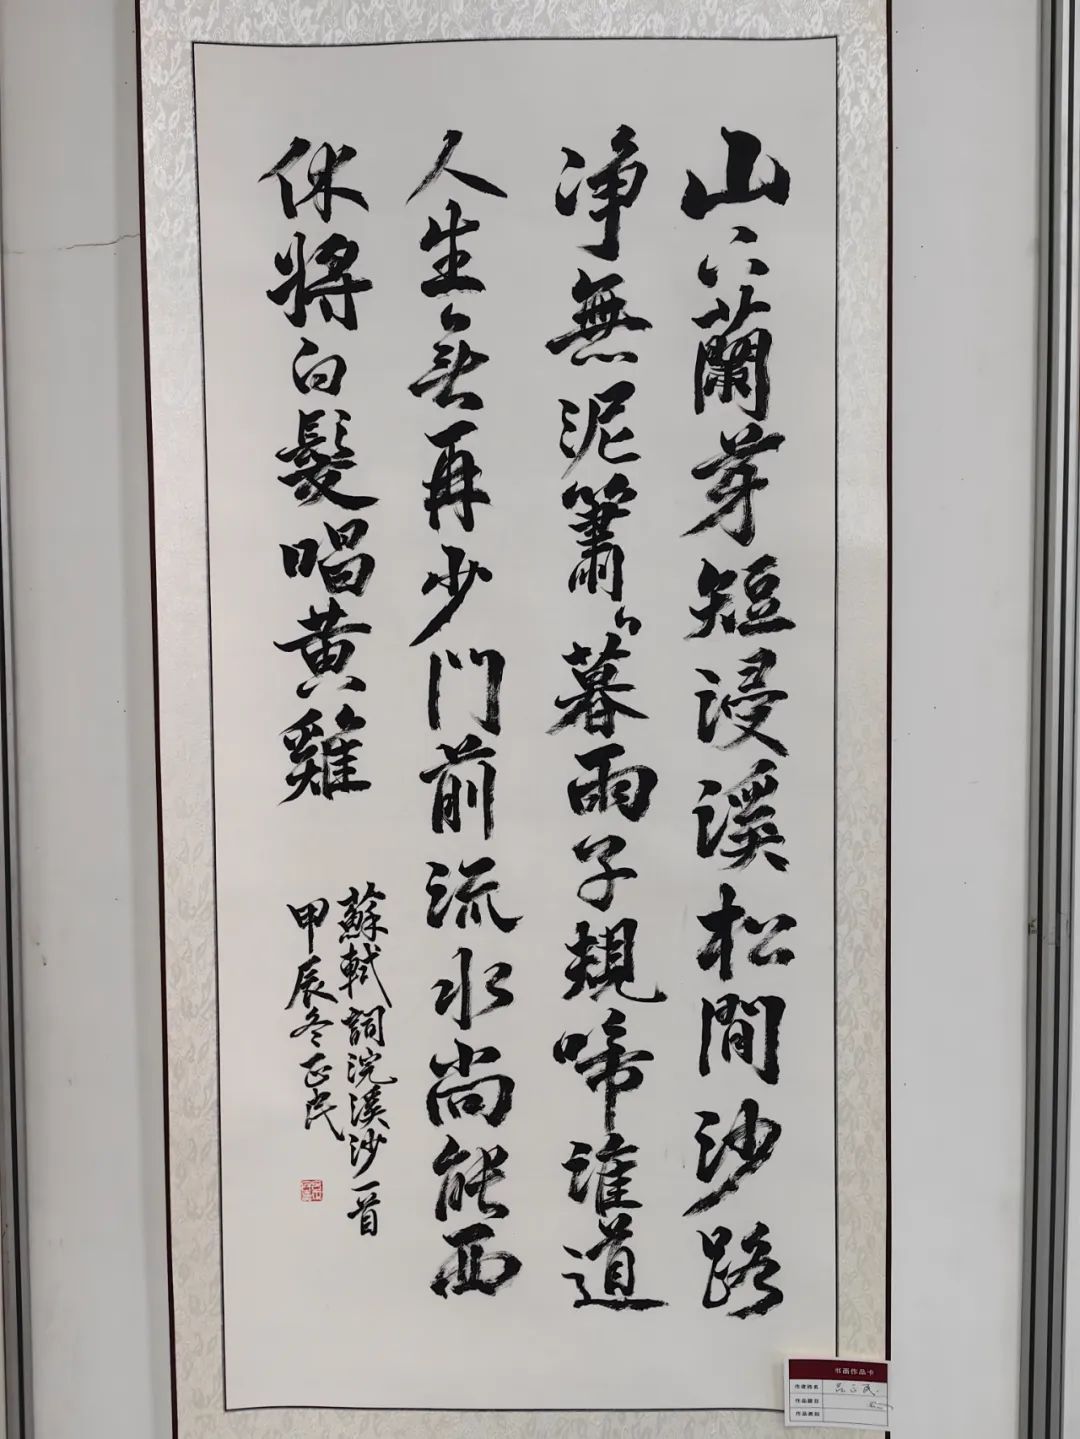 山下蘭芽短浸溪松間沙路
净無泥蕭〻暮雨子規啼誰道
人生無再少門前流水尚能西
休將白髮唱黄雞
蘇軾詞浣溪沙一首
甲辰冬正民
书画作品卡
作者姓名 正民
作品题目
作品类别